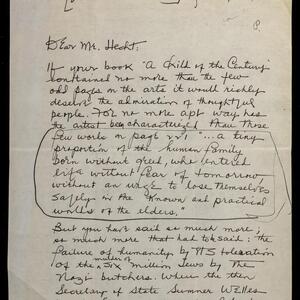 8.
Dear Mr. Hecht:
If your book "A Child of the Century"
contained no more than the few
odd pages on the arts it would richly
deserve the admiration of thoughtful
people. For no more apt way has
the artist been characterized than those
few words on page "... a tiny
proportion of the human family
born without greed, who entered
life without fear of tomorrow
without an urge to lose themselves
safely in the known and practical
worlds of the elders."
But you have said so much more;
so much more that had to be said: the
failure of humanity by its toleration
of the murder of six million Jews by the
Nazi butchers. When the then
Secretary of State Sumner Welles